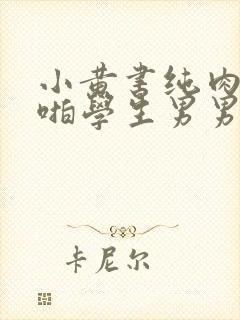 小黄書纯肉
啪學生男男
卡尼尔